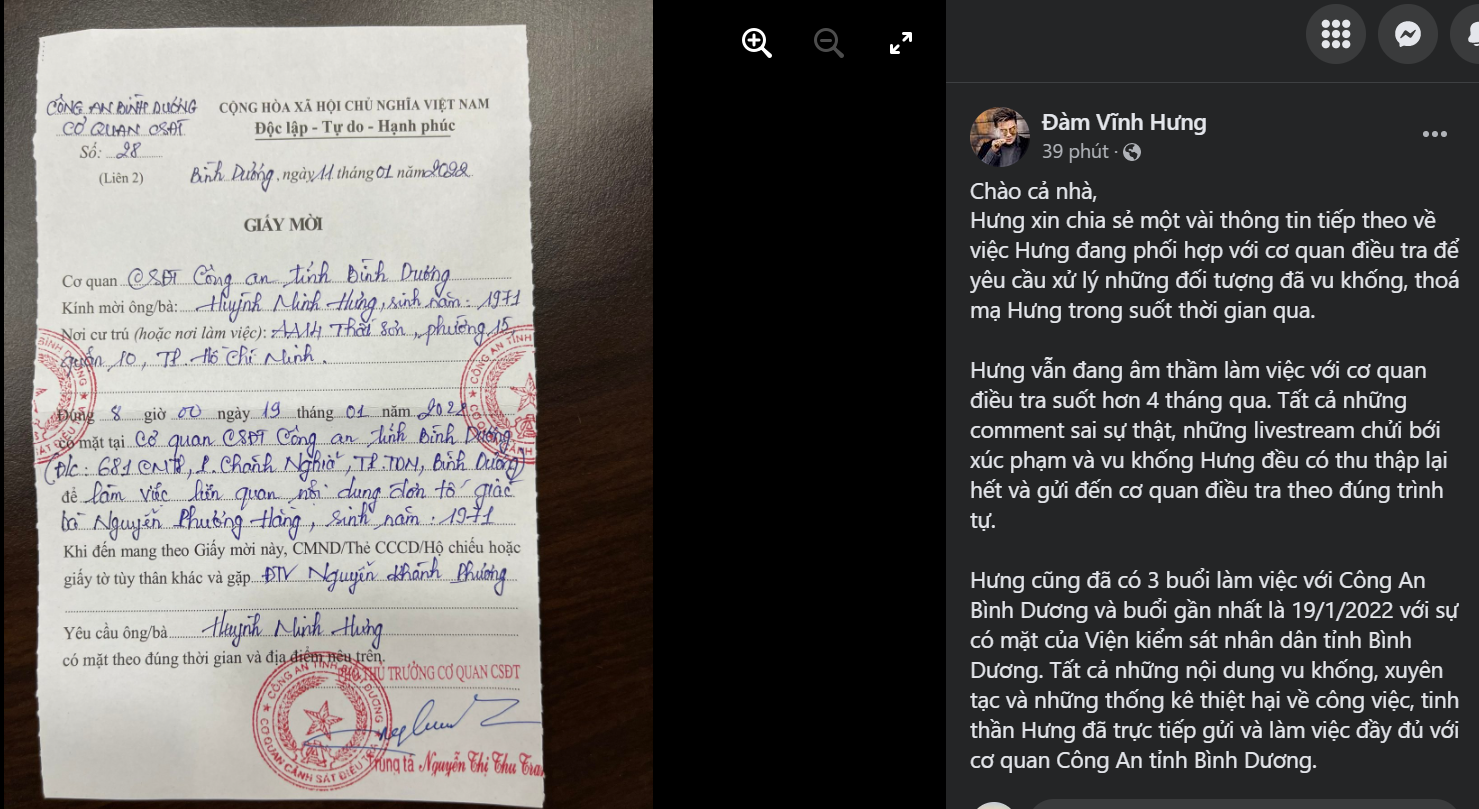 CÔNG AN BÌNH DƯƠNG
CƠ QUAN CSĐT
Số: 28
(Liên 2)
CỘNG HÒA XÃ HỘI CHỦ NGHĨA VIỆT NAM
Độc lập - Tự do - Hạnh phúc
Bình Dương, ngày 11 tháng 01 năm 2022
GIẤY MỜI
Cơ quan CSĐT Công an tỉnh Bình Dương
Kính mời ông/bà: Huỳnh Minh Hưng, sinh năm: 1971
Nơi cư trú (hoặc nơi làm việc): AA14 Thái Sơn, phường 15,
quận 10, TP. Hồ Chí Minh.
Đúng 8 giờ 00 ngày 19 tháng 01 năm 2022
có mặt tại Cơ quan CSĐT Công an tỉnh Bình Dương
(Đ/c: 681 CMT8, P. Chánh Nghĩa, TP. TDM, Bình Dương)
để làm việc liên quan nội dung đơn tố giác
bà Nguyễn Phương Hằng, sinh năm: 1971
Khi đến mang theo Giấy mời này, CMND/Thẻ CCCD/Hộ chiếu hoặc
giấy tờ tùy thân khác và gặp ĐTV Nguyễn Khánh Phương
Yêu cầu ông/bà Huỳnh Minh Hưng
có mặt theo đúng thời gian và địa điểm nêu trên.
PHÓ THỦ TRƯỞNG CƠ QUAN CSĐT
CÔNG AN TỈNH BÌNH DƯƠNG
CƠ QUAN CẢNH SÁT ĐIỀU
Trung tá Nguyễn Thị Thu Tran
Đàm Vĩnh Hưng
39 phút ·
Chào cả nhà,
Hưng xin chia sẻ một vài thông tin tiếp theo về
việc Hưng đang phối hợp với cơ quan điều tra để
yêu cầu xử lý những đối tượng đã vu khống, thoá
mạ Hưng trong suốt thời gian qua.
Hưng vẫn đang âm thầm làm việc với cơ quan
điều tra suốt hơn 4 tháng qua. Tất cả những
comment sai sự thật, những livestream chửi bới
xúc phạm và vu khống Hưng đều có thu thập lại
hết và gửi đến cơ quan điều tra theo đúng trình
tự.
Hưng cũng đã có 3 buổi làm việc với Công An
Bình Dương và buổi gần nhất là 19/1/2022 với sự
có mặt của Viện kiểm sát nhân dân tỉnh Bình
Dương. Tất cả những nội dung vu khống, xuyên
tạc và những thống kê thiệt hại về công việc, tinh
thần Hưng đã trực tiếp gửi và làm việc đầy đủ với
cơ quan Công An tỉnh Bình Dương.